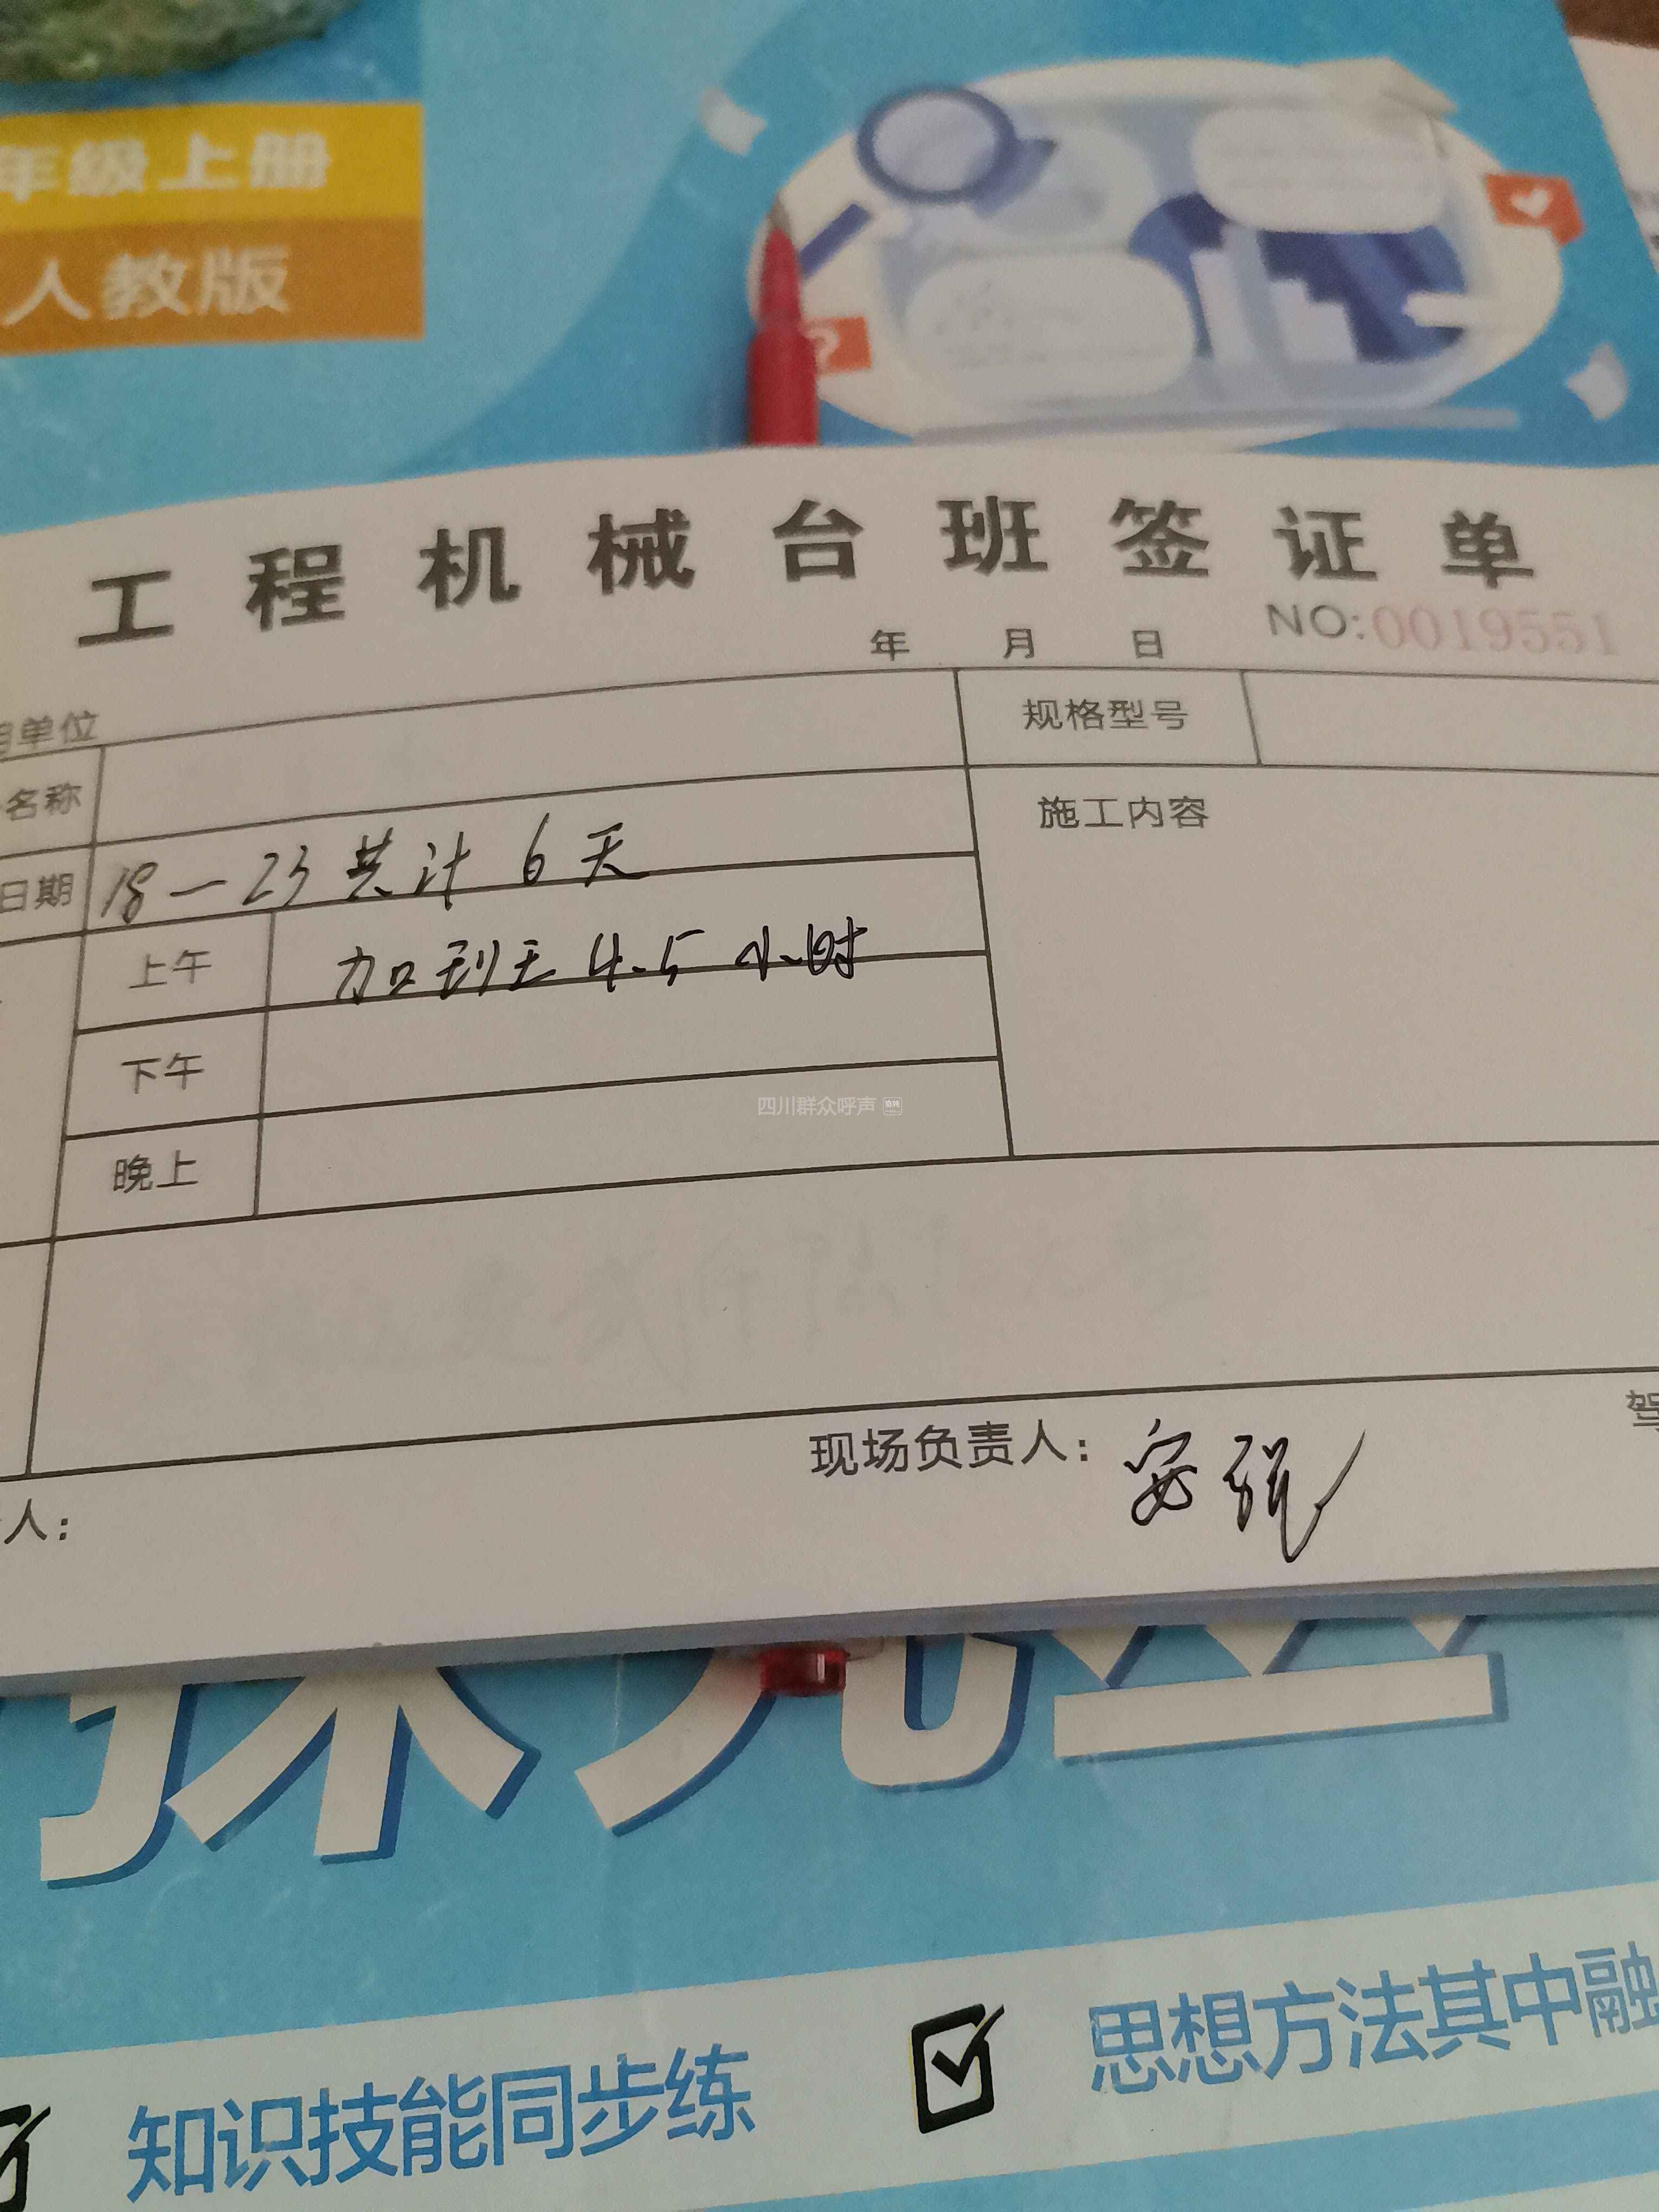 年级上册
人教版
工程机械台班签证单
年 月 日 NO:0019551
单位
名称 规格型号
日期 18—23共计6天 施工内容
上午 加到无4.5小时
下午
晚上
四川群众呼声
现场负责人：安锐 驾
人：
探究
知识技能同步练 思想方法其中融